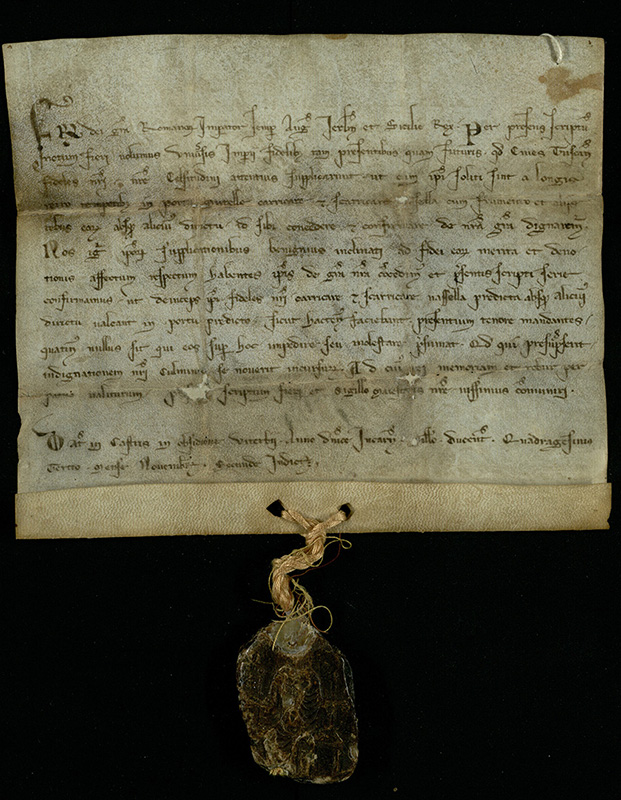 FR dei gra Romanor Imperator semp Aug Ierlm et Sicilie Rex. Per presens scriptu
notum fieri volumus universis Imperii fidelib tam presentibus quam futuris. qd Cives Tuscan
fideles nri. nre Celsitudini attentius supplicarunt. ut cum ipi soliti sint a longis
retro temporib in portu carricare et scarricare vassella cum frumento et aliis
rebus eor absq alicuius dirictu id sibi concedere et confirmare de nra gra dignarem.
Nos igr ipor supplicationibus benignius inclinati. ad fidei eor merita et devo
tionis affectum respectum habentes ipis de gra nra concedim et psentis scripti serie
confirmamus ut deinceps ipi fideles nri carricare et scarricare vassella predicta absq alicuius
dirictu valeant in portu predicto. sicut hacten faciebant. presentium tenore mandantes.
quatin nullus sit qui eos sup hoc impedire seu molestare psumat. Qd qui presupserit
indignationem nri Culminis se noverit incursur. Ad cuius rei memoriam et robur per
petuo valiturum scriptum fieri et sigillo maiestatis nre iussimus comuniri.
Dat in Castris in obsidione Viterbii. Anno dnice Incarn. Mill. Ducent. Quadragesimo
Tertio. Mense Novembr. Secunde Indictionis.